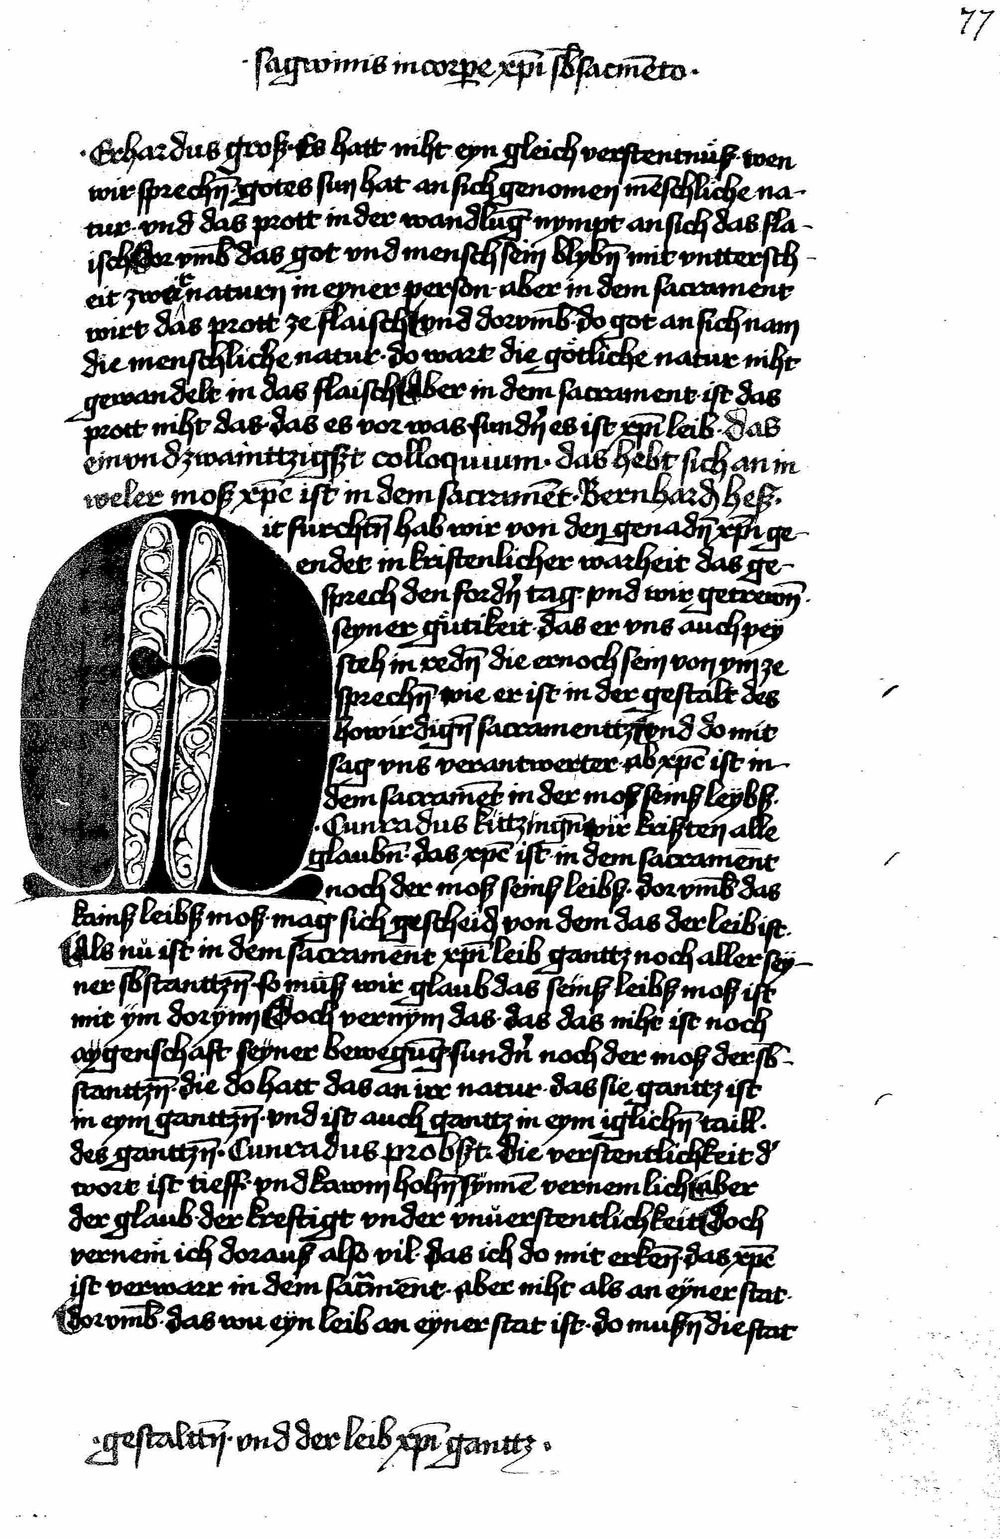 77
· sagwinis in corpe xp̄i sb̄sacmēto ·
· Erhardus groß · Es hatt niht eyn gleich verstentnuͤß · wen
wir sprechn̄ · gotes sun hat an sich genomen mēschliche na-
tur · vnd das prott in der wandlūg nympt an sich das fla-
isch Dorvmb̄ das got vnd mensch sein blybn̄ mit vnttersch-
eit zweir naturn in eyner person · aber in dem sacrament
wirt das prott ze flaisch vnd dorvmb̄ · do got an sich nam
die menschliche natur · do wart die goͤtliche natur niht
gewandelt in das flaisch Aber in dem sacrament · ist das
prott niht das · das es vor was · sundn̄ es ist xp̄i leib · das
ein vnd zwainttzigßt colloquium · das hebt sich an in
weler moß xp̄c ist in dem sacramēt · Bernhard heß ·
Mit furchtn̄ hab wir von den genadn̄ xp̄i ge-
endet in kristenlicher warheit das ge-
sprech den fordn̄ tag · vnd wir getrewn̄ ·
seyner guͤtikeit · das er vns auch pey
steh in redn̄ die er noch sein von ym ze
sprechn̄ wie er ist in der gestalt des
howirdign̄ sacramenttz vnd do mit
sag vns verantwerter · ab xp̄c ist in
dem sacramēt in der moß seinß leybß ·
· Cunradus kittzingn̄ wir krißten alle
glaubn̄ · das xp̄c ist · in dem sacramēnt
noch der moß seinß leibß · dorvmb̄ das
kainß leibß moß · mag sich gescheid von dem das der leib ist ·
Als nu ist in dem sacramēnt xp̄i leib ganttz noch aller sey-
ner sb̄stanttzn̄ · so muͤß wir glaub das seinß leibß moß ist
mit ym dorynn Doch vernym das · das das niht ist noch
aygenschaft seyner bewegūg sundn̄ noch der moß der sb̄-
stanttzn̄ · die do hatt das an irr natur · das sie ganttz ist
in eym ganttzn̄ · vnd ist auch ganttz in eym iglichn̄ taill ·
des ganttzn̄ · Cunradus probßt · die verstentlichkeit d̄
wort ist tieff · vnd kawm hohn̄ synnē vernemlich Aber
der glaub · der krestigt vnder vnuerstentlichkeit Doch
vernem ich dorauß also vil · das ich do mit erkēn · das xp̄c
ist verwarr in dem sacramēnt · aber niht als an eyner stat ·
Dorvmb̄ · das wu eyn leib an eyner stat ist · do mußn̄ die stat
· gestalttn̄ · vnd der leib xp̄i ganttz ·